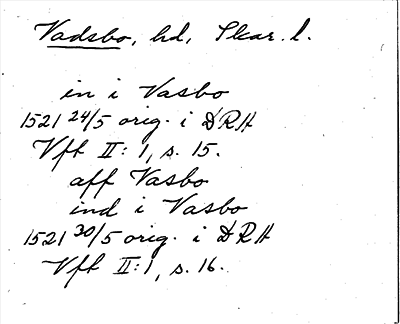 Vadsbo, hd, Skar. l.
in i Vasbo
1521 24/5 orig. i DRA
Vft II: 1, s. 15.
aff Vasbo
ind i Vasbo
1521 30/5 orig. i DRA
Vft II: 1, s. 16.